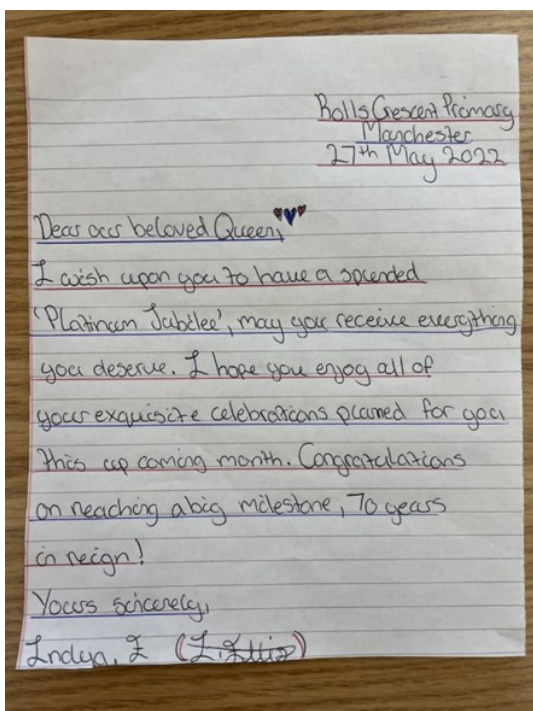 Rolls Crescent Primary
Manchester
27th May 2022
Dear our beloved Queen,
I wish upon you to have a spended
'Platinum Jubilee', may you receive everything
you deserve. I hope you enjoy all of
your exquisite celebrations planned for you
this up coming month. Congratulations
on reaching a big milestone, 70 years
in reign!
Yours sincerely,
Indya. E